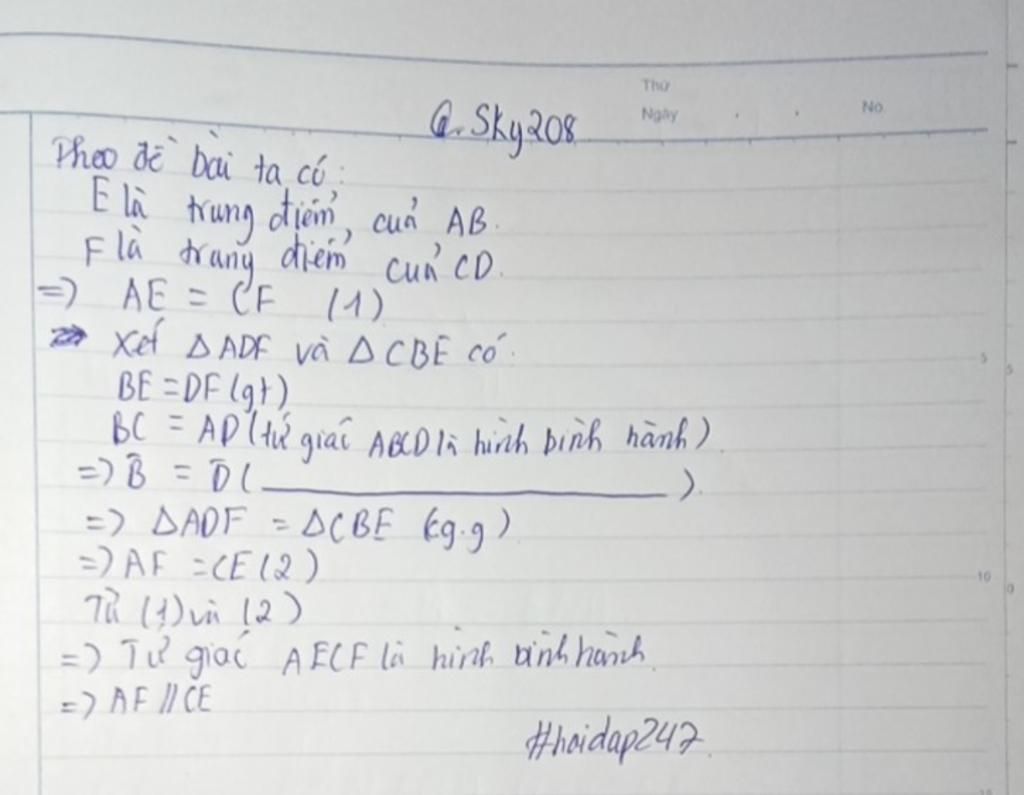 Thứ
Ngày . . No.
Q. Sky208
Theo đề bài ta có:
E là trung điểm của AB.
F là trung điểm của CD.
=> AE = CF (1)
Xét ΔADF và ΔCBE có:
BE = DF (gt)
BC = AD (tứ giác ABCD là hình bình hành)
=> B̂ = D̂ (____________________).
=> ΔADF = ΔCBE (cg.g)
=> AF = CE (2)
Từ (1) và (2)
=> Tứ giác AECF là hình bình hành.
=> AF // CE
#hoidap247
5
5
10